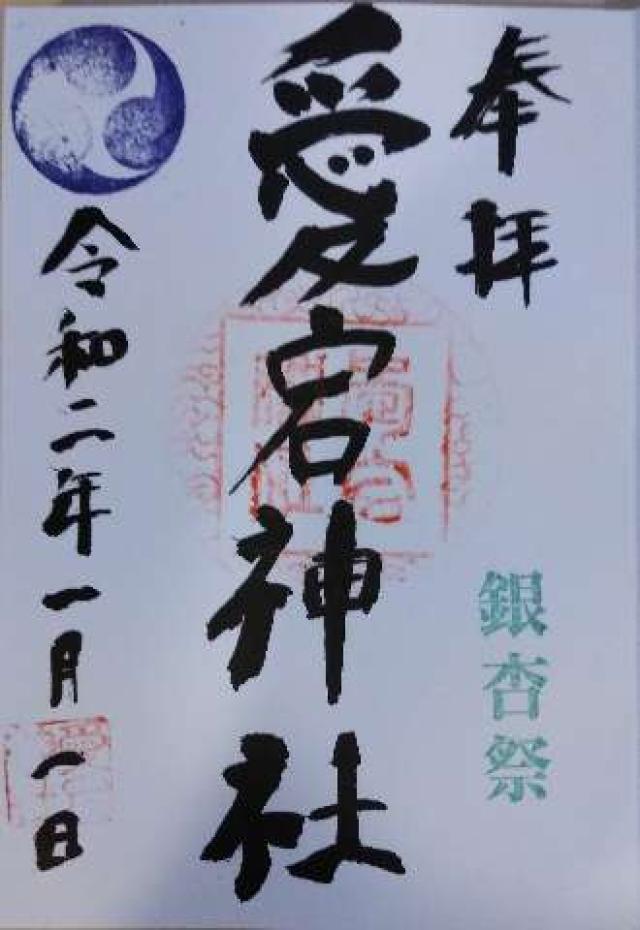 奉拝
愛宕神社
銀杏祭
令和二年一月一日